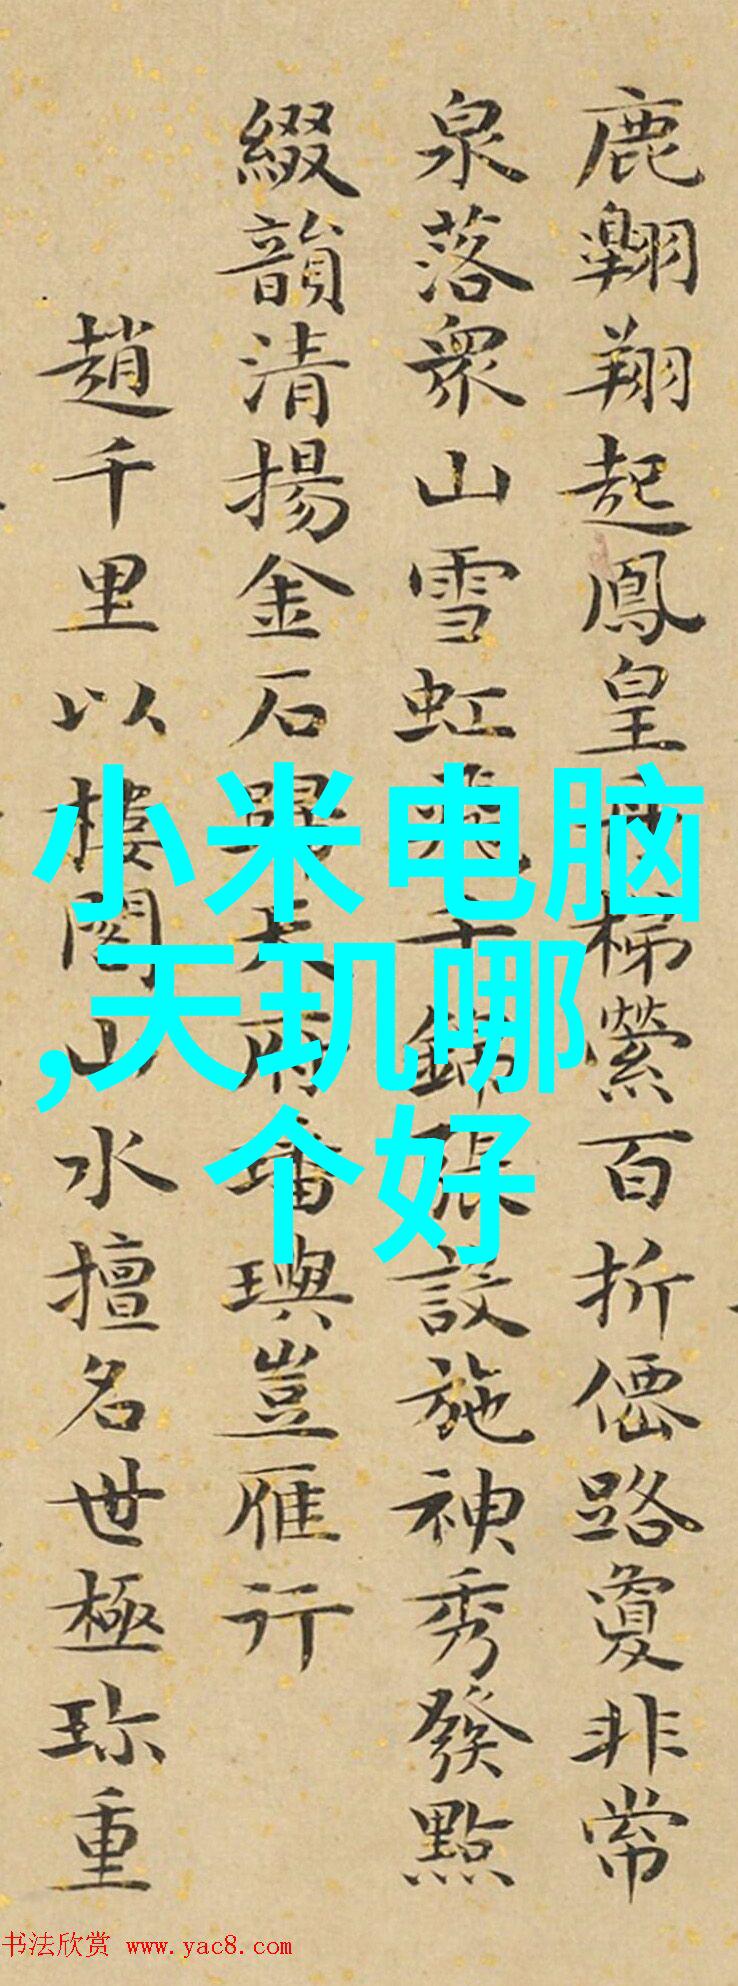 鹿翺翔起鳳皇梯縈百折僊路敻非常
泉落衆山雪虹飛千錦張設施神秀發點
綴韻清揚金石歸天府璠璵豈雁行
趙千里以樓閣山水擅名世極珎重
小米电脑
,天玑哪
个好
书法欣赏 www.yac8.com